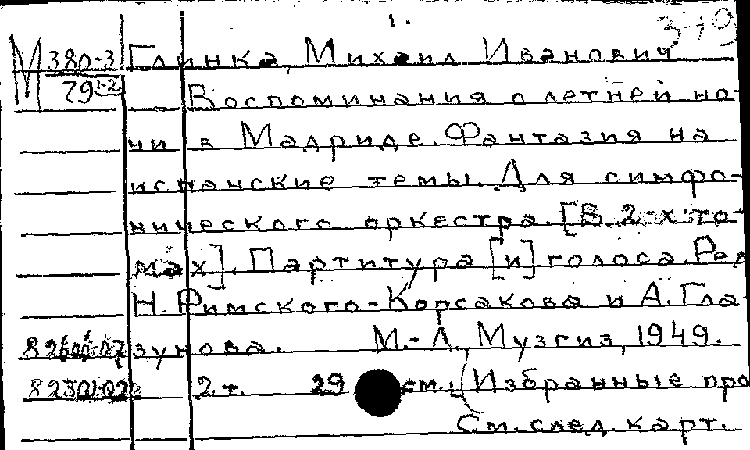 1.
М 380-3 Глинка, Михаил Иванович
79 Воспоминания о летней но-
чи в Мадриде. Фантазия на
испанские темы. Для симфо-
нического оркестра. [В 2-х то-
мах]. Партитура [и] голоса. Ред.
Н. Римского-Корсакова и А. Гла-
зунова. М.-Л., Музгиз, 1949.
2 т. 29 см. (Избранные про
См. след. карт.